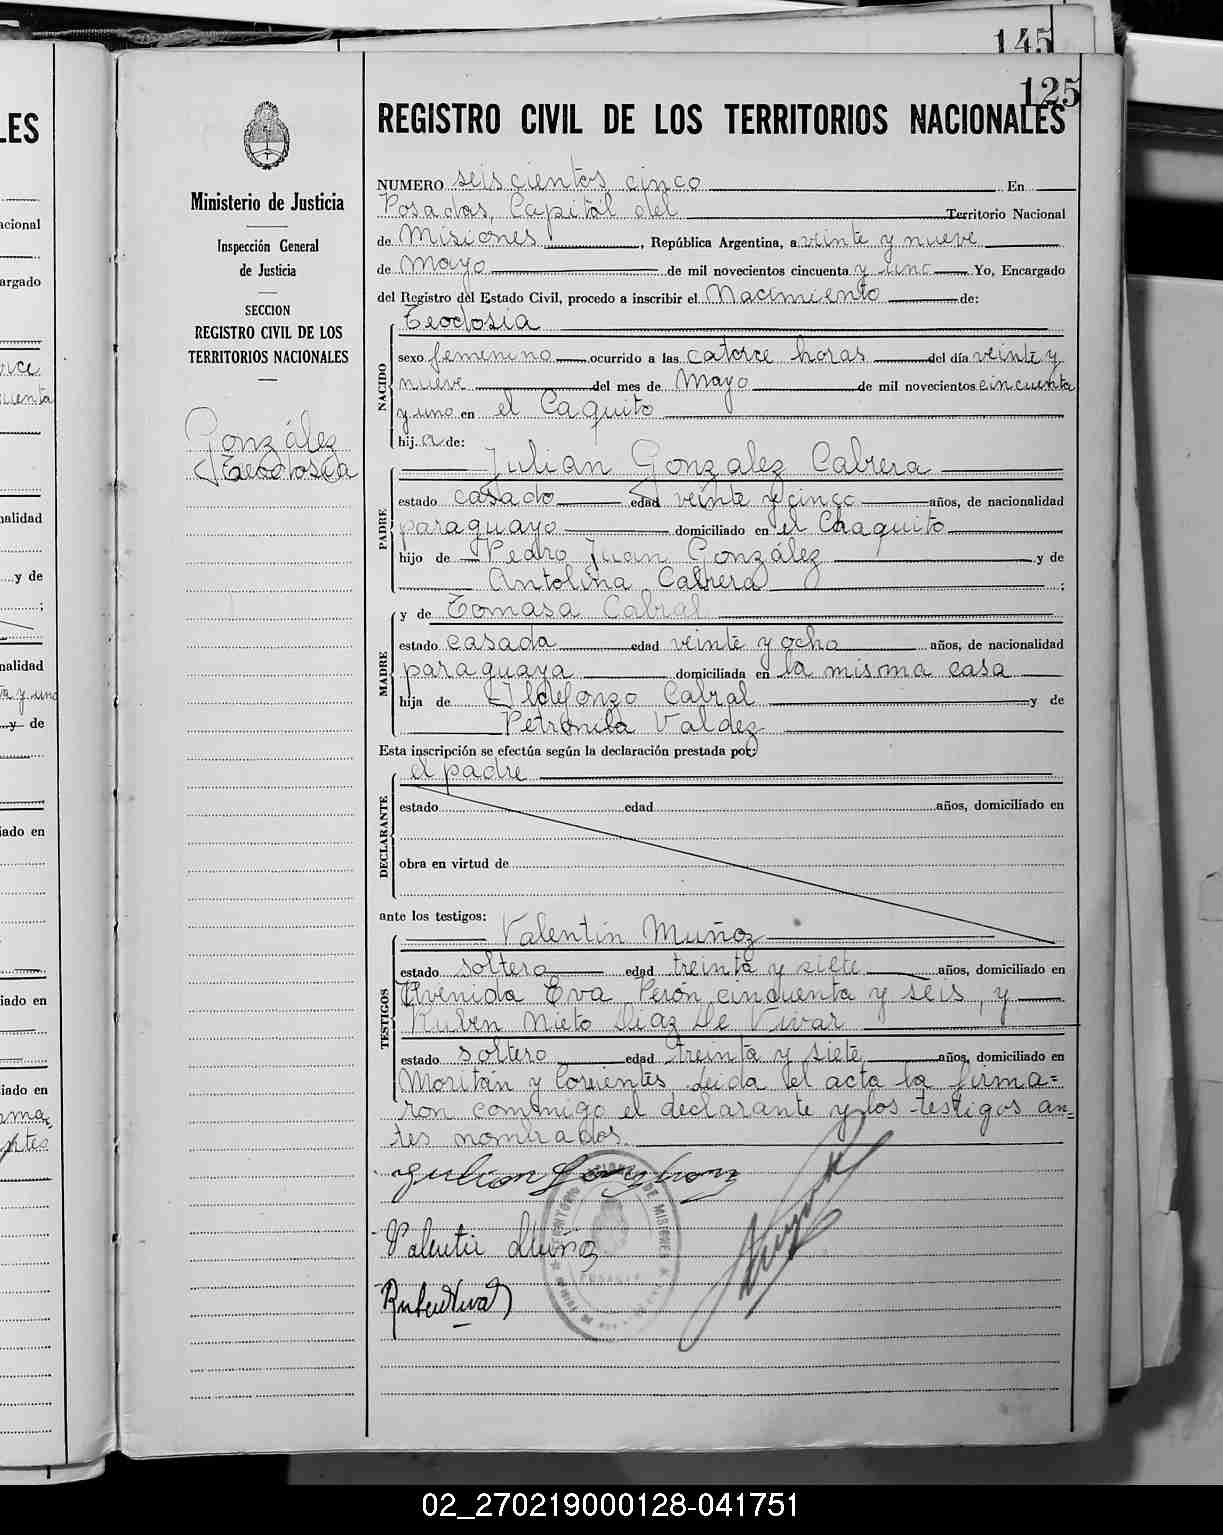 145
125
REGISTRO CIVIL DE LOS TERRITORIOS NACIONALES
Ministerio de Justicia
Inspección General
de Justicia
SECCION
REGISTRO CIVIL DE LOS
TERRITORIOS NACIONALES
González
Teodosia
NUMERO seiscientos cinco En
Posadas, Capital del Territorio Nacional
de Misiones, República Argentina, a veinte y nueve
de Mayo de mil novecientos cincuenta y uno Yo, Encargado
del Registro del Estado Civil, procedo a inscribir el Nacimiento de:
NACIDO
Teodosia
sexo femenino ocurrido a las catorce horas del día veinte y
nueve del mes de Mayo de mil novecientos cincuenta
y uno en el Caquito
hij a de:
PADRE
Julian Gonzalez Cabrera
estado casado edad veinte y cinco años, de nacionalidad
paraguayo domiciliado en el Chaquito
hijo de Pedro Juan González y de
Antolina Cabrera ;
MADRE
y de Tomasa Cabral
estado casada edad veinte y ocho años, de nacionalidad
paraguaya domiciliada en la misma casa
hija de Ildefonzo Cabral y de
Petronila Valdez
Esta inscripción se efectúa según la declaración prestada por:
DECLARANTE
el padre
estado edad años, domiciliado en
obra en virtud de
ante los testigos:
TESTIGOS
Valentin Muñoz
estado soltero edad treinta y siete años, domiciliado en
Avenida Eva Perón cincuenta y seis, y
Ruben Nieto Diaz De Vivar
estado soltero edad treinta y siete años, domiciliado en
Moritán y Corrientes Leida el acta la firma=
ron conmigo el declarante y los testigos an=
tes nombrados.
Valentin Muñoz
02_270219000128-041751